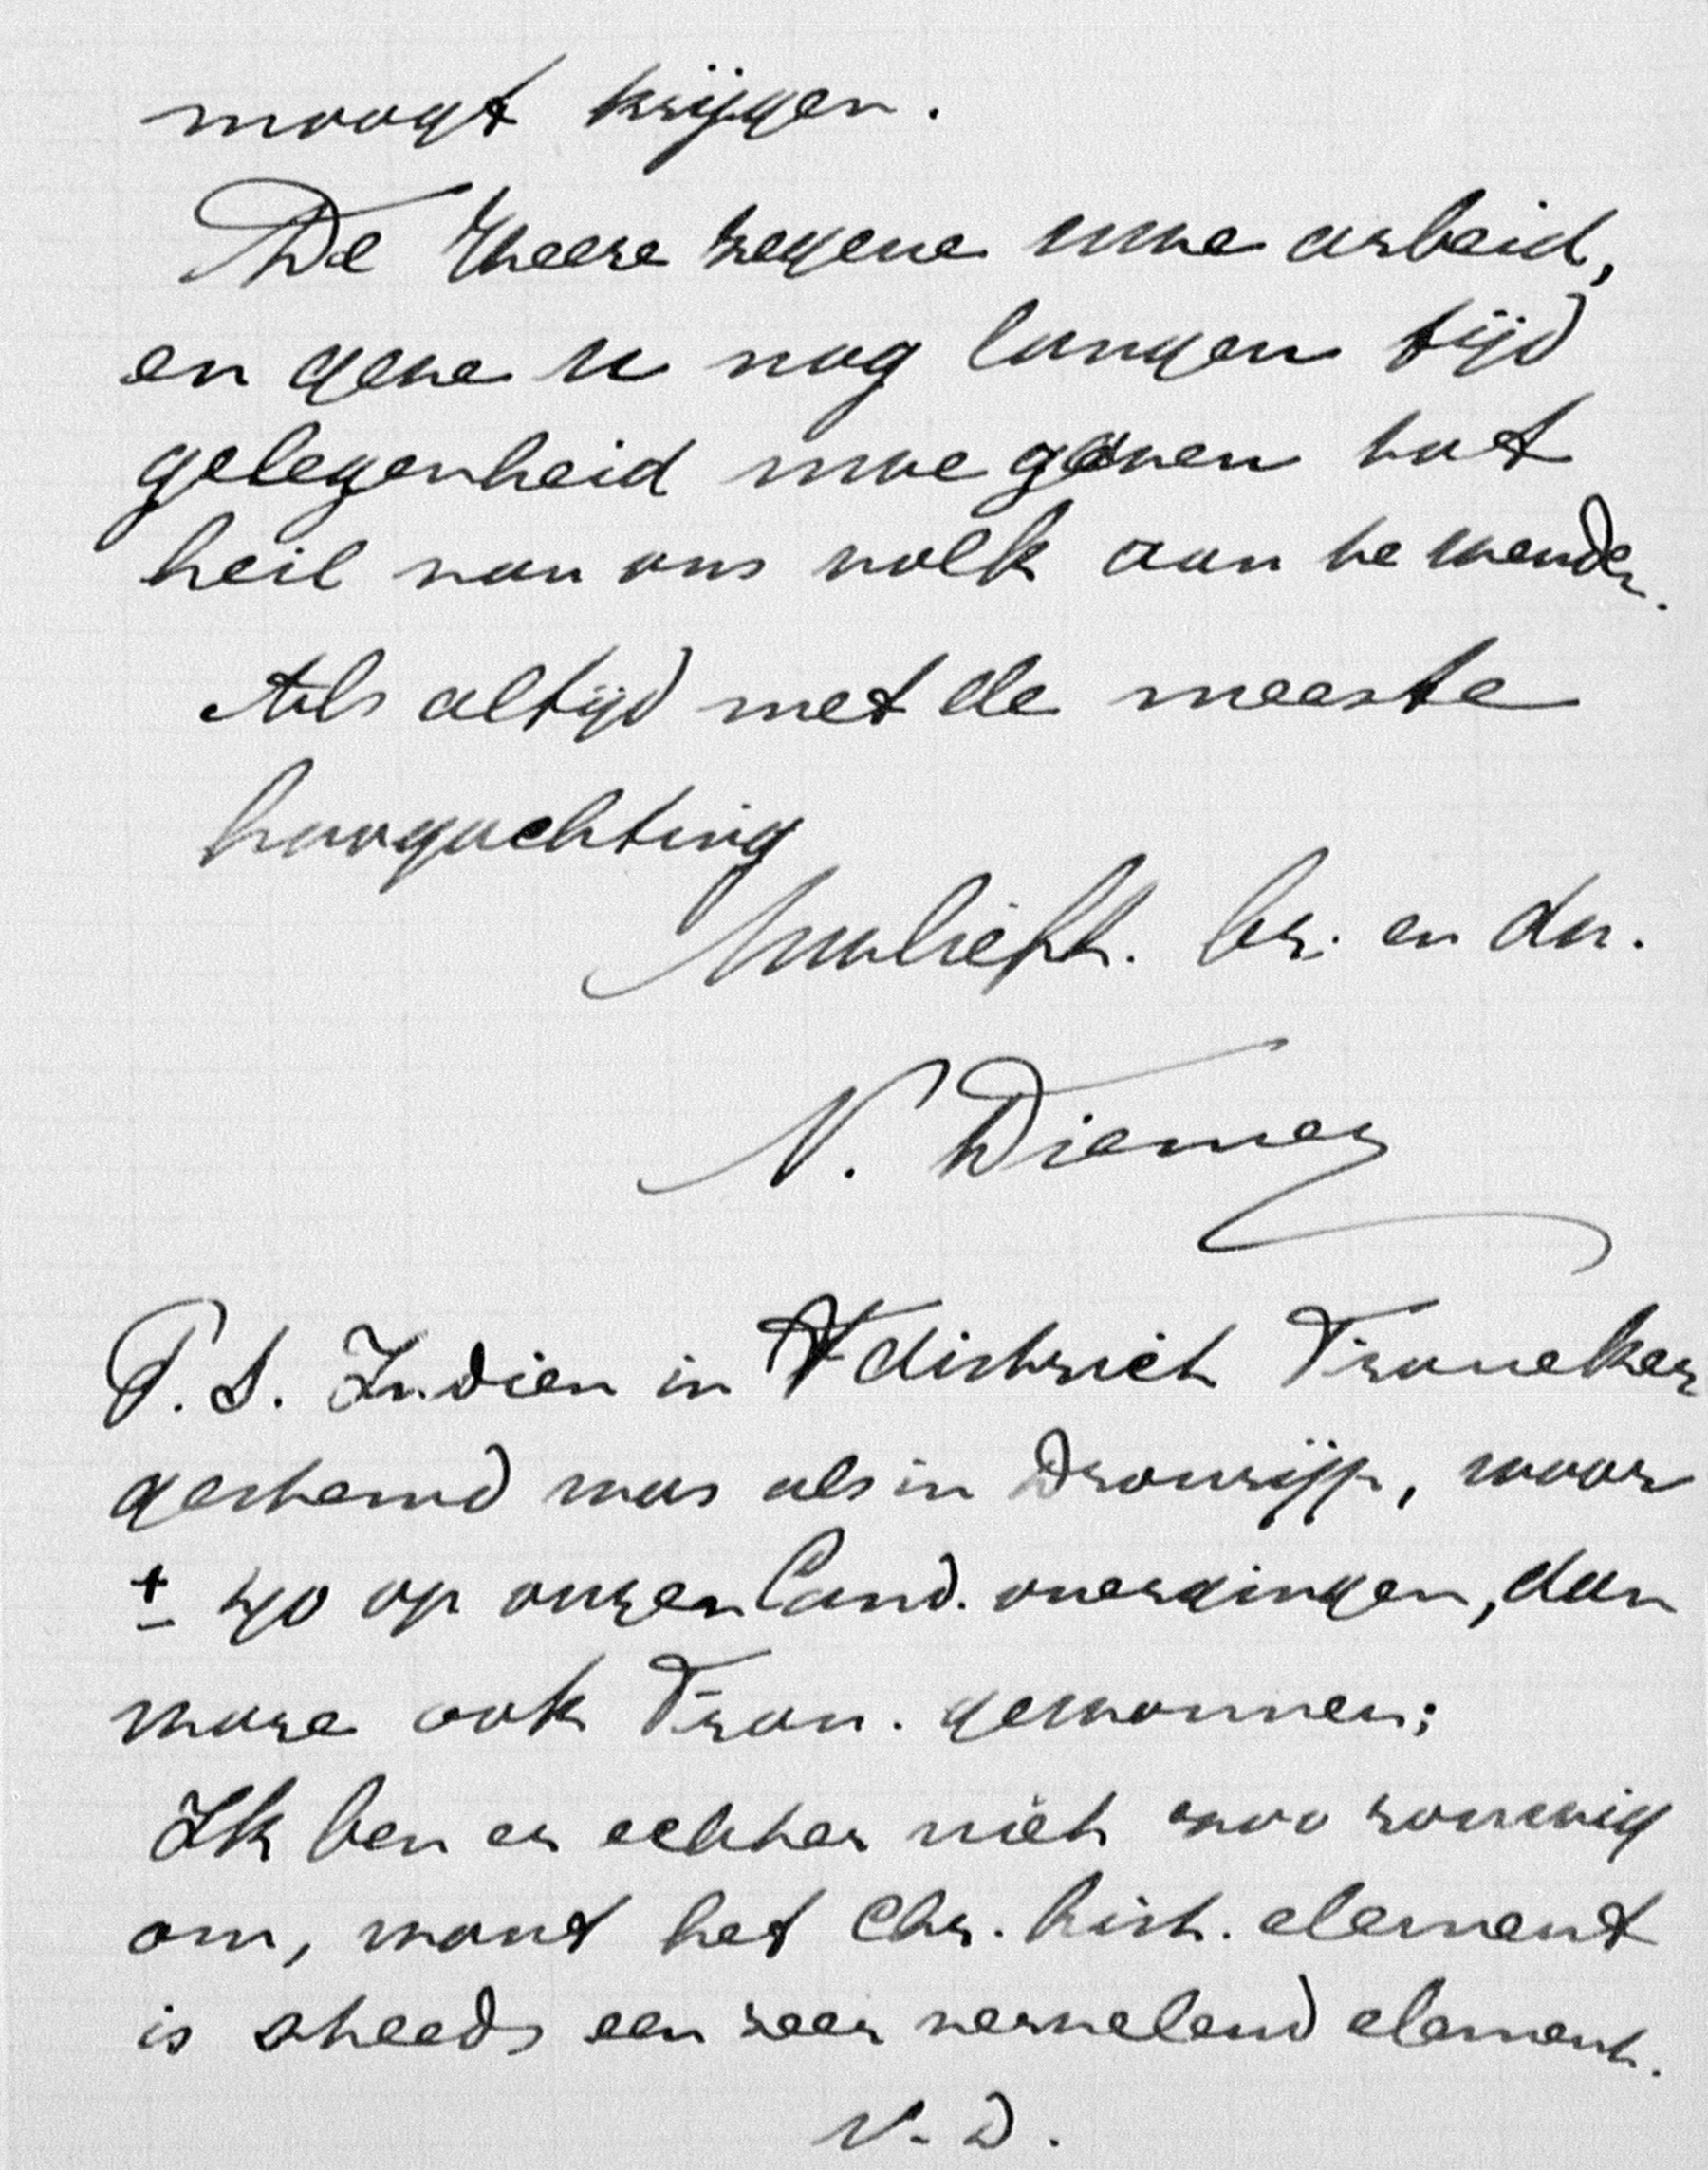 moogt krijgen.
De Heere zegene uwe arbeid,
en geve u nog langen tijd
gelegenheid uwe gaven tot
heil van ons volk aan te wenden.
Als altijd met de meeste
hoogachting
Uw liefh. br. en dn.
N. Diemer
P.S. Indien in district Franeker
gestemd was als in Dronrijp, waar
± 40 op onzen Cand. overgingen, dan
ware ook Fran. gewonnen;
Ik ben er echter niet zoo rouwig
om, want het Chr. hist. element
is steeds een zeer vervelend element.
N. D.